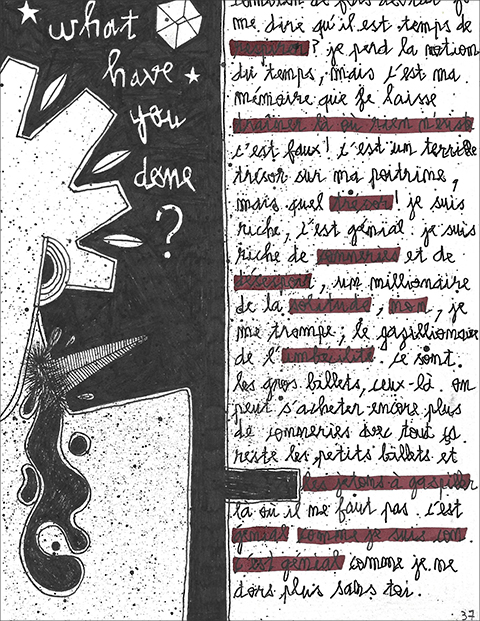 what
have
you
done
?
me dire qu'il est temps de
respirer? je perd la notion
du temps, mais c'est ma
mémoire que je laisse
traîner là où rien n'existe
c'est faux! c'est un terrible
trésor sur ma poitrine,
mais quel trésor! je suis
riche, c'est génial. je suis
riche de conneries et de
désespoir, un millionaire
de la solitude. non, je
me trompe; le gazillionaire
de l'imbécilité. ce sont
les gros billets, ceux-là. on
peut s'acheter encore plus
de conneries avec tout ça.
reste les petits billets et
les jetons à gaspiller
là où il me faut pas. c'est
génial comme je suis con.
c'est génial comme je ne
dors plus sans toi.
37